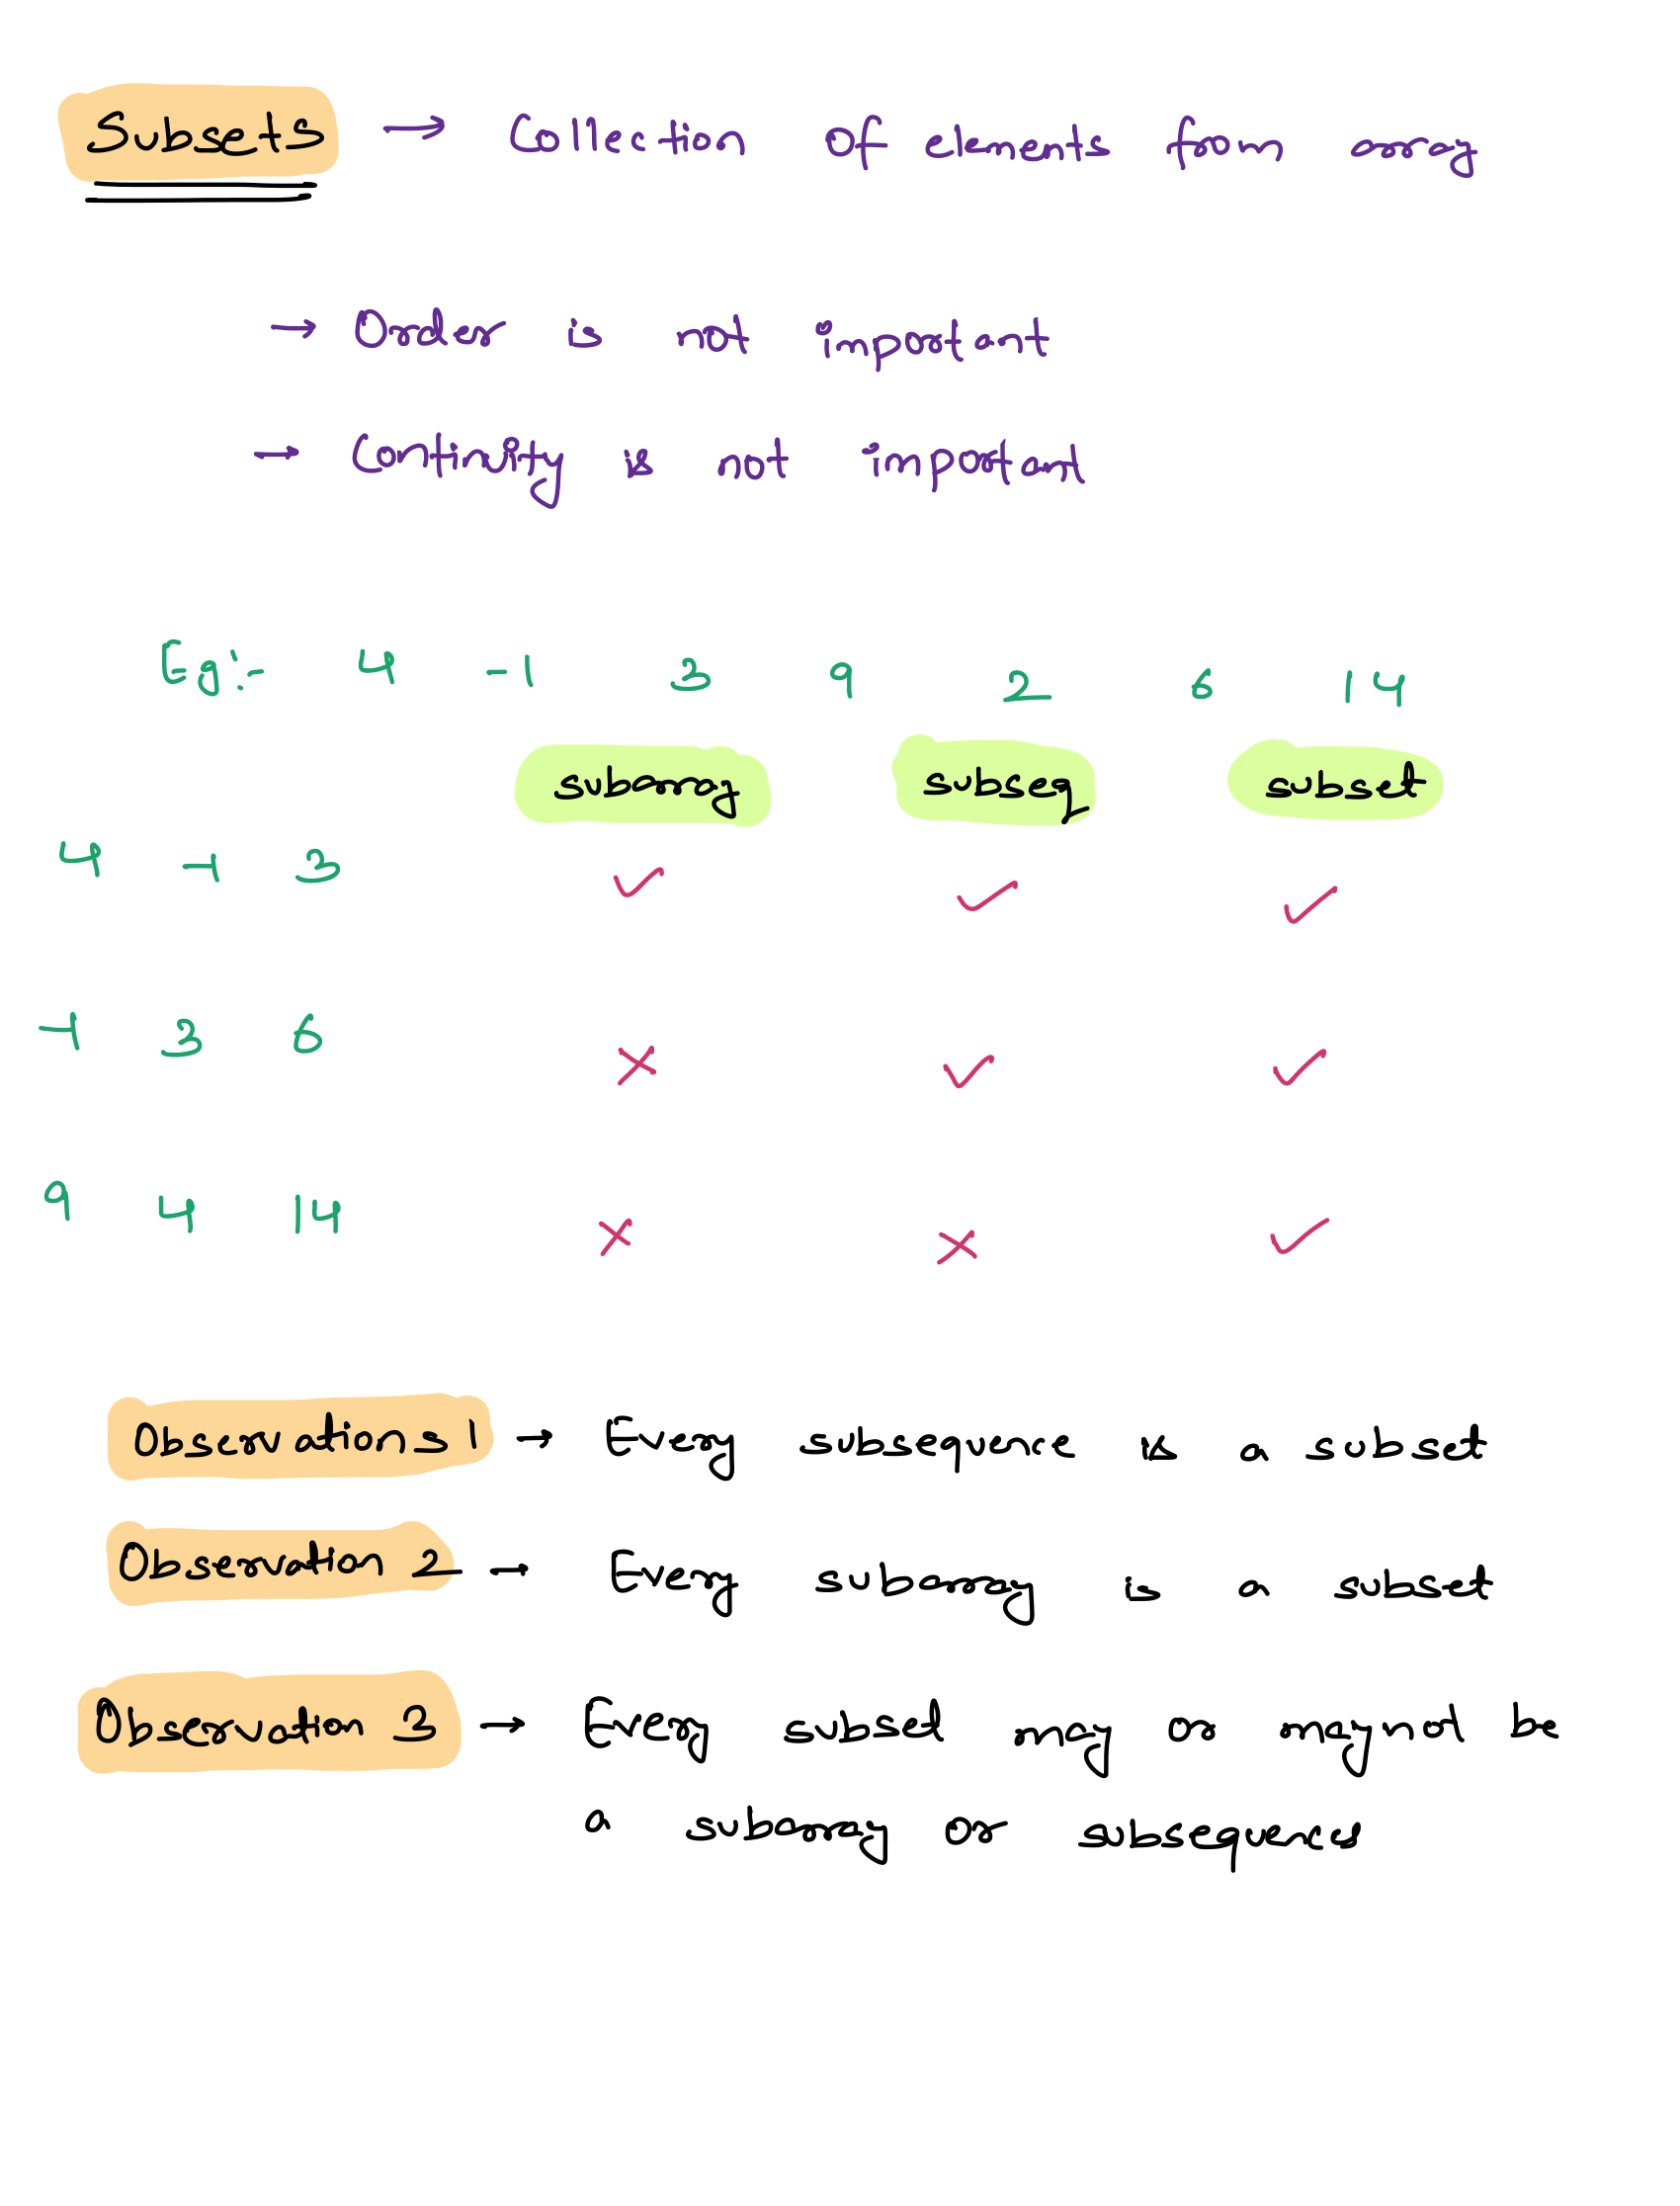 Subsets → Collection of elements from array
→ Order is not important
→ Continuity is not important
Eg:- 4 -1 3 9 2 6 14
subarray subseq subset
4 -1 3 ✓ ✓ ✓
-1 3 6 ✗ ✓ ✓
9 4 14 ✗ ✗ ✓
Observations 1 → Every subsequence is a subset
Observation 2 → Every subarray is a subset
Observation 3 → Every subset may or may not be
a subarray or subsequences